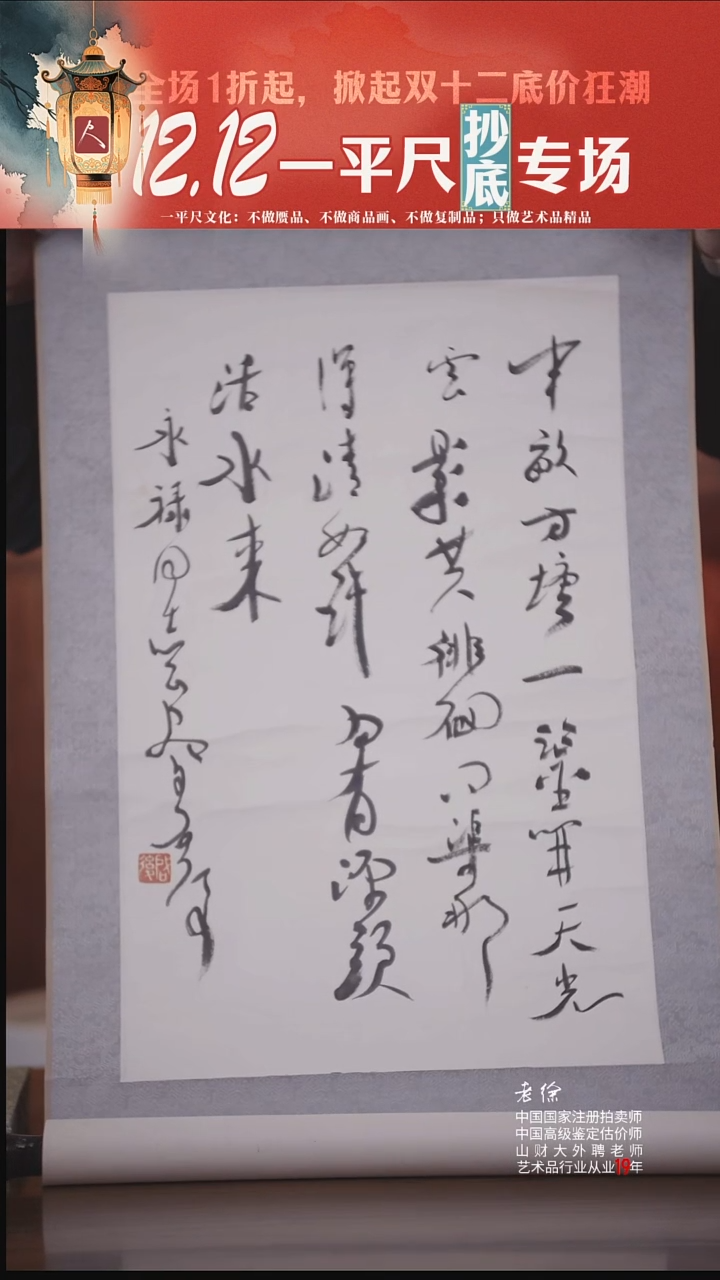 全场1折起，掀起双十二底价狂潮
12.12一平尺抄底专场
一平尺文化：不做赝品、不做商品画、不做复制品；只做艺术品精品
尺
半畝方塘一鑒開天光
雲影共徘徊問渠那
得清如許為有源頭
活水来
永禄同志
老徐
中国国家注册拍卖师
中国高级鉴定估价师
山财大外聘老师
艺术品行业从业19年